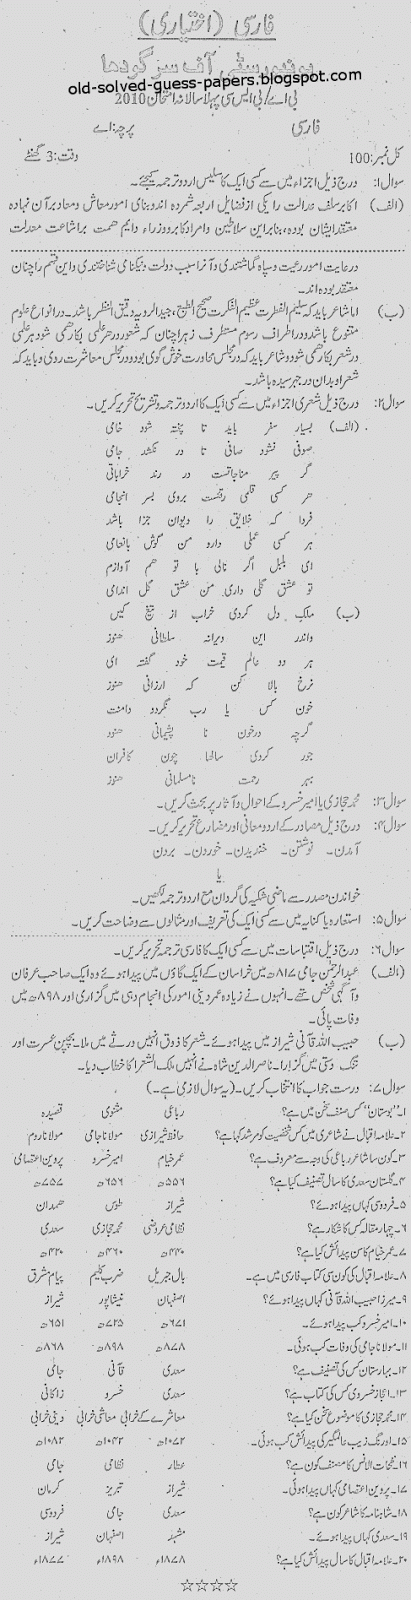 فارسی (اختیاری)
یونیورسٹی آف سرگودھا
old-solved-guess-papers.blogspot.com
بی اے/بی ایس سی پہلا سالانہ امتحان 2010
فارسی پرچہ: اے
کل نمبر: 100 وقت: 3 گھنٹے
سوال ۱: درج ذیل اجزاء میں سے کسی ایک کا سلیس اردو ترجمہ کیجئے۔
(الف) اکابر سلف عدالت را یکی از فضایل اربعہ شمردہ اند و بنای امور معاش و معاد بر آن نہادہ
معتقد ایشان بودہ، بنابر این سلاطین و امراء کابر و وزراء دایم ہمت بر اشاعت معدلت
در رعایت امور رعیت و سپاہ گماشتندی و آنرا سبب دولت و نیکنامی شناختندی و این قسم را چنان
معتقد بودہ اند۔
(ب) اما شاعر باید کہ سلیم الفطرت عظیم الفکرت صحیح الطبع، جید الرویہ دقیق النظر باشد۔ در انواع علوم
متنوع باشد و در اطراف رسوم مستطرف زیرا چنان کہ شعر در ہر علمی بکار ہمی شود ہر علمی
در شعر بکار ہمی شود و شاعر باید کہ در مجلس محاورت خوش گوی بود و در مجلس معاشرت روی و باید کہ
شعر او بدان درجہ رسیدہ باشد۔
سوال ۲: درج ذیل شعری اجزاء میں سے کسی ایک کا اردو ترجمہ و تشریح تحریر کریں۔
(الف) بسیار سفر باید تا پختہ شود خامی
صوفی نشود صافی تا در نکشد جامی
گر پیر مناجاتست ور رند خراباتی
ہر کسی قلمی رفتست بروی بسر انجامی
فردا کہ خلایق را دیوان جزا باشد
ہر کسی عملی دارد من گوش بانعامی
ای بلبل اگر نالی با تو ہم آوازم
تو عشق گلی داری من عشق گل اندامی
(ب) ملک دل کردی خراب از تیغ کین
واندر این ویرانہ سلطانی ہنوز
ہر دو عالم قیمت خود گفتہ ای
نرخ بالا کن کہ ارزانی ہنوز
خون کس یا رب نگردد دامنت
گرچہ در خون نا پشیمانی ہنوز
جور کردی سالہا چون کافران
بہر رحمت نا مسلمانی ہنوز
سوال ۳: محمد حجازی یا امیر خسرو کے احوال و آثار پر بحث کریں۔
سوال ۴: درج ذیل مصادر کے اردو معانی اور مضارع تحریر کریں۔
آمدن۔ نوشتن۔ خندیدن۔ خوردن۔ بردن
یا
خواندن مصدر سے ماضی شکیہ کی گردان مع اردو ترجمہ لکھیں۔
سوال ۵: استعارہ یا کنایہ میں سے کسی ایک کی تعریف اور مثالوں سے وضاحت کریں۔
سوال ۶: درج ذیل اقتباسات میں سے کسی ایک کا فارسی ترجمہ تحریر کریں۔
(الف) عبدالرحمٰن جامی ۸۱۷ھ میں خراسان کے ایک گاؤں میں پیدا ہوئے وہ ایک صاحب عرفان
و آگہی شخص تھے۔ انہوں نے زیادہ عمر دینی امور کی انجام دہی میں گزاری اور ۸۹۸ھ میں
وفات پائی۔
(ب) حبیب اللہ قآنی شیراز میں پیدا ہوئے۔ شعر کا ذوق انہیں ورثے میں ملا۔ بچپن عسرت اور
تنگ دستی میں گزرا۔ ناصر الدین شاہ نے انہیں ملک الشعرا کا خطاب دیا۔
سوال ۷: درست جواب کا انتخاب کریں۔ (یہ سوال لازمی ہے)۔
۱۔ "بوستان" کس صنف سخن میں ہے؟ رباعی مثنوی قصیدہ
۲۔ علامہ اقبال نے شاعری میں کس شخصیت کو مرشد کہا ہے؟ حافظ شیرازی مولانا جامی مولانا روم
۳۔ کون سا شاعر رباعی کی وجہ سے معروف ہے؟ عمر خیام امیر خسرو پروین اعتصامی
۴۔ گلستان سعدی کا سال تصنیف کیا ہے؟ ۵۵۶ھ ۶۵۶ھ ۷۵۷ھ
۵۔ فردوسی کہاں پیدا ہوئے؟ شیراز طوس ہمدان
۶۔ چہار مقالہ کس کا شکار ہے؟ نظامی عروضی محمد حجازی سعدی
۷۔ عمر خیام کا سن پیدائش کیا ہے؟ ۴۴۰ھ ۴۶۰ھ ۴۲۰ھ
۸۔ علامہ اقبال کی کون سی کتاب فارسی میں ہے۔ بال جبریل ضرب کلیم پیام مشرق
۹۔ میرزا حبیب اللہ قآنی کہاں پیدا ہوئے؟ اصفہان نیشاپور شیراز
۱۰۔ امیر خسرو کب پیدا ہوئے۔ ۶۷۱ھ ۷۲۵ھ ۶۵۱ھ
۱۱۔ مولانا جامی کی وفات کب ہوئی۔ ۸۷۸ھ ۸۹۸ھ ۸۶۸ھ
۱۲۔ بہارستان کس کی تصنیف ہے؟ سعدی قآنی جامی
۱۳۔ اعجاز خسروی کس کی کتاب ہے؟ سعدی خسرو زاکانی
۱۴۔ محمد حجازی کا موضوع سخن کیا ہے؟ معاشرے کے خرابی معاشی خرابی دینی خرابی
۱۵۔ اورنگ زیب عالمگیر کی پیدائش کب ہوئی۔ ۱۰۷۲ھ ۱۰۴۲ھ ۱۰۸۲ھ
۱۶۔ نفحات الانس کا مصنف کون ہے؟ عطار نظامی جامی
۱۷۔ پروین اعتصامی کہاں پیدا ہوئی۔ شیراز تبریز کرمان
۱۸۔ شاہنامہ کا شاعر کون ہے؟ سعدی جامی فردوسی
۱۹۔ سعدی کہاں پیدا ہوئے۔ مشہد اصفہان شیراز
۲۰۔ علامہ اقبال کا سال پیدائش کیا ہے؟ ۱۸۷۸ء ۱۸۹۸ء ۱۸۷۷ء
☆☆☆☆